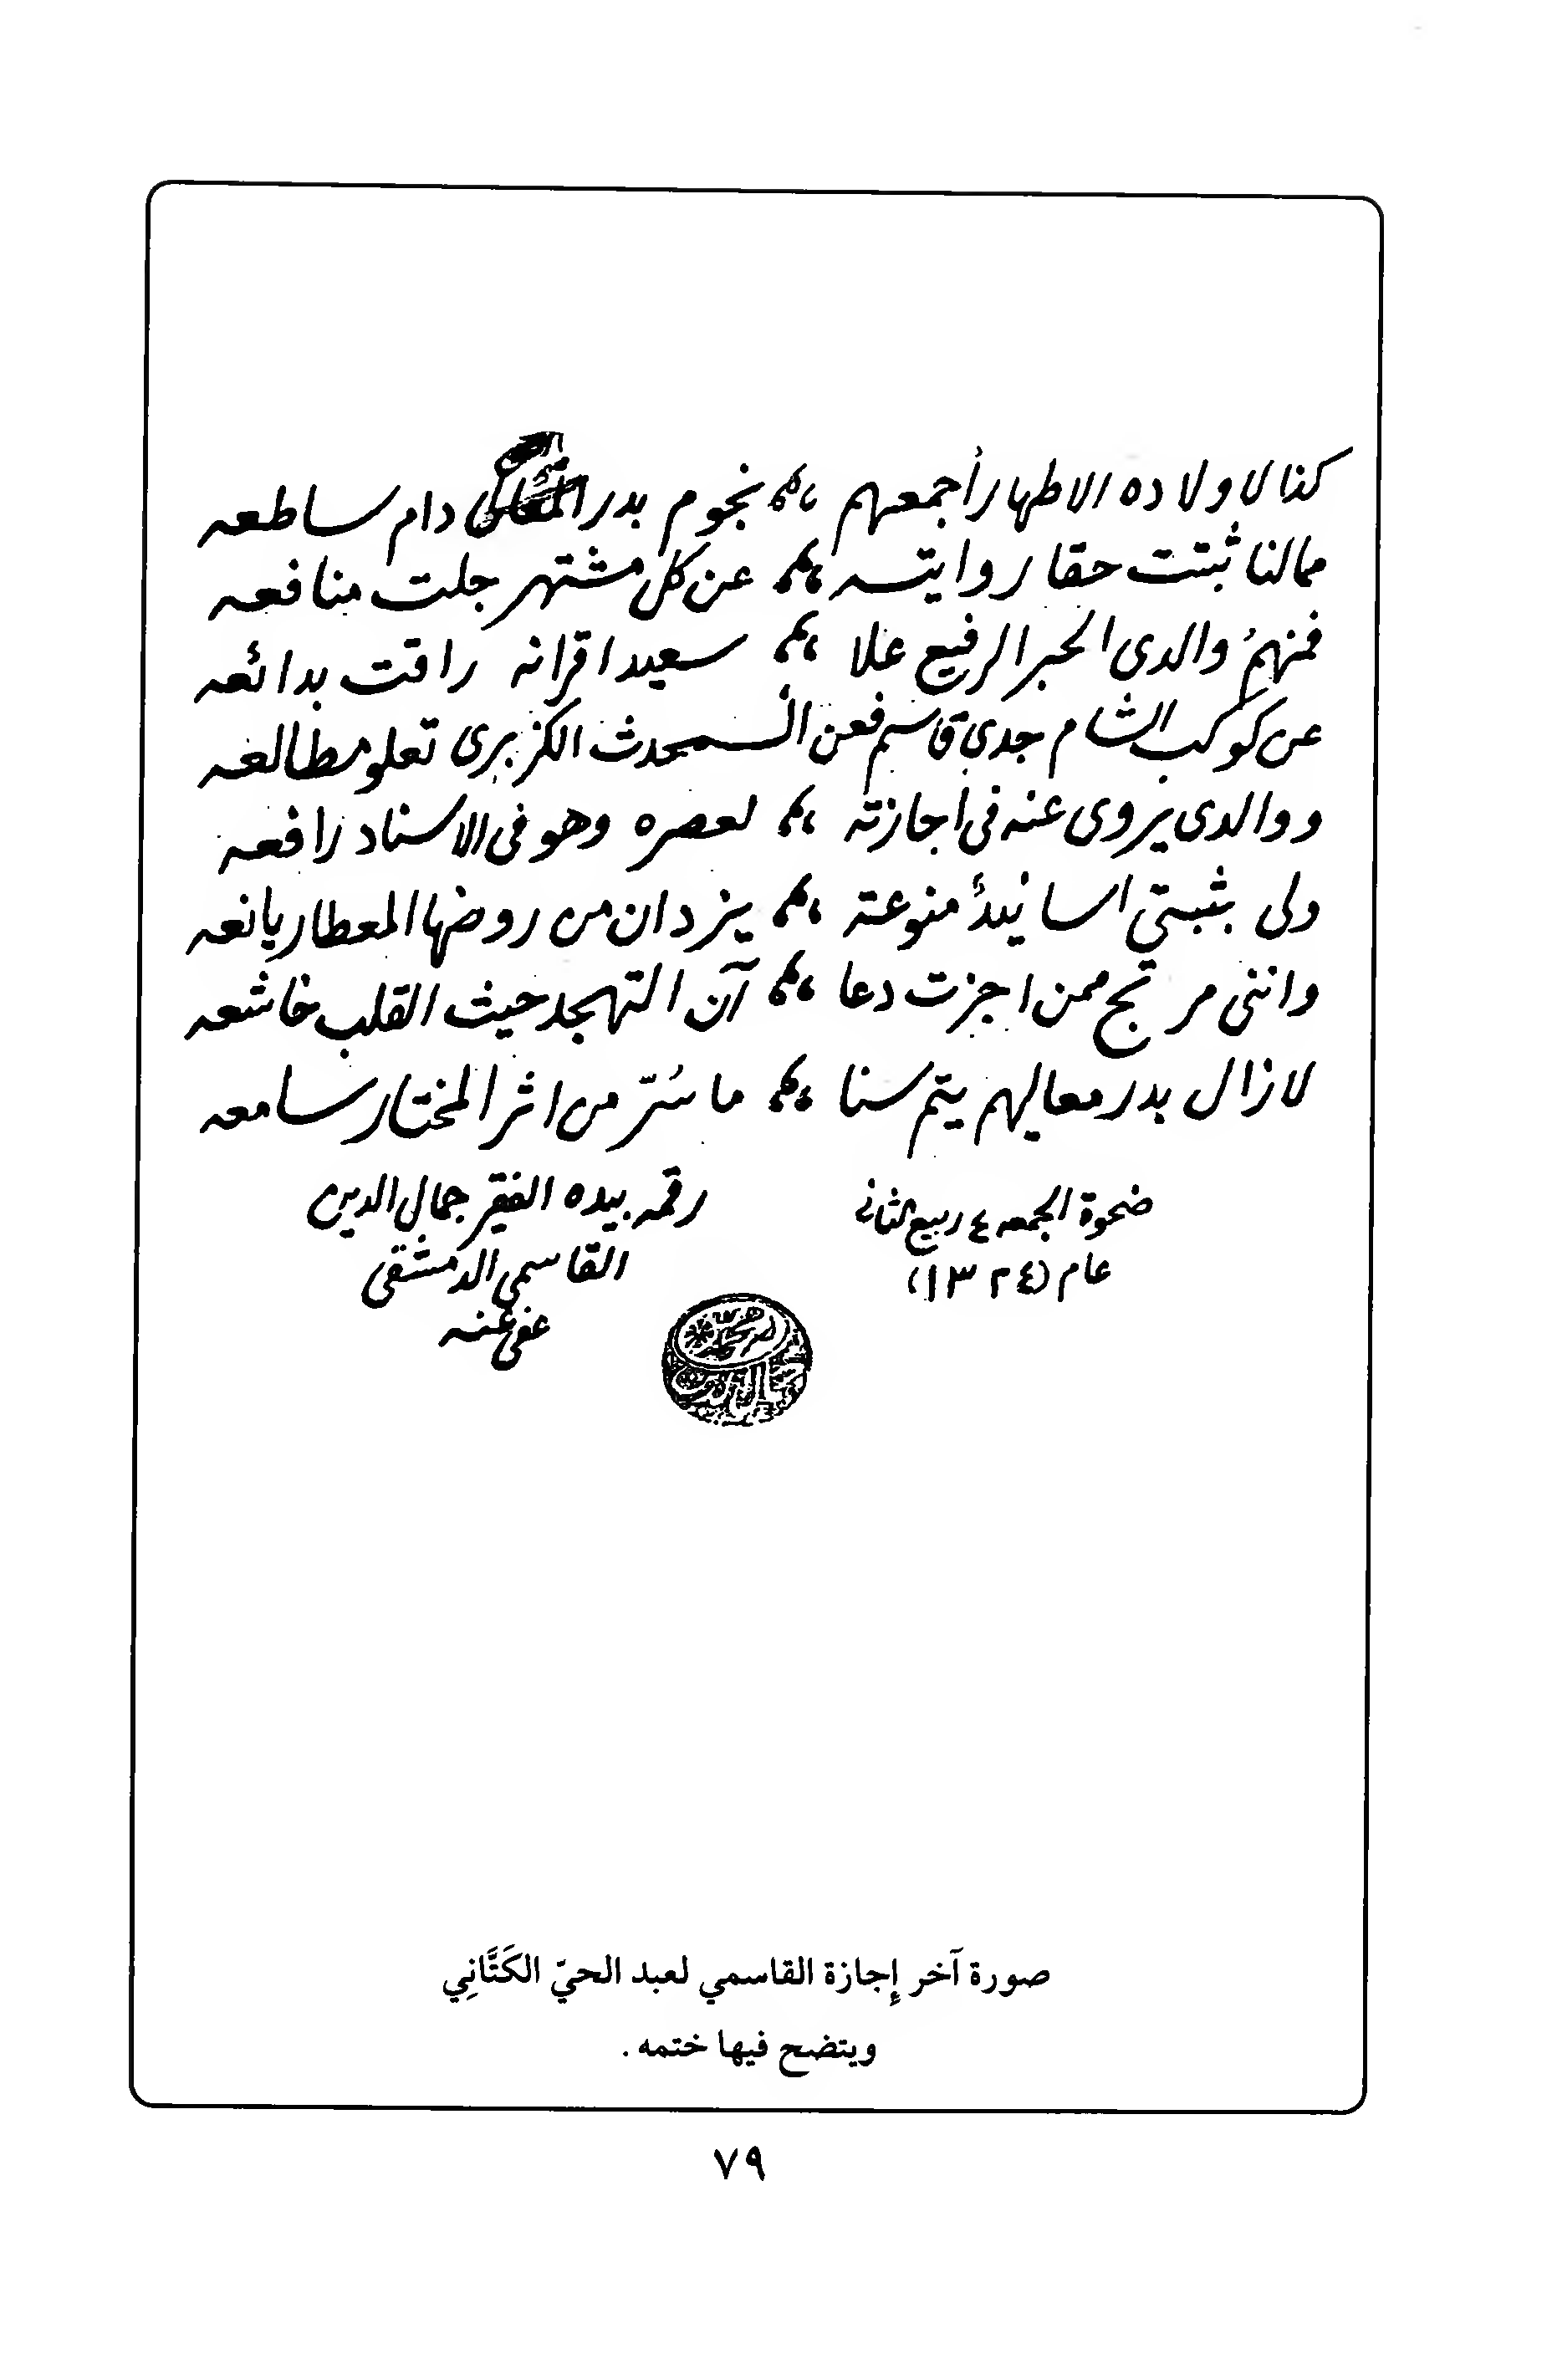 كذا لاولاده الاطهار أجمعهم ،، نجوم بدر دام ساطعه
ممالنا ثبتت حقا روايته ،، عن كل مشتهر جلت منافعه
فمنهمُ والدى الحبر الرفيع علا ،، سعيد اقرانه راقت بدائعه
عن كوكب الشام جدي قاسم فعن الـمحدث الكزبرى تعلو مطالعه
ووالدى يروى عنه في اجازته ،، لعصره وهو في الاسناد رافعه
ولى بثبتي اسانيد منوعة ،، يزدان من روضها المعطار يانعه
وانني مرتج ممن اجزت دعا ،، آن التهجد حيث القلب خاشعه
لازال بدر معاليهم يتم سنا ،، ما سُرّ من اثر المختار سامعه
ضحوة الجمعه ٤ ربيع الثاني
عام (١٣٢٤)
رقمه بيده الفقير جمال الدين
القاسمي الدمشقي
عفي عنه
صورة آخر إجازة القاسمي لعبد الحيّ الكَتَّانِي
ويتضح فيها ختمه .
٧٩